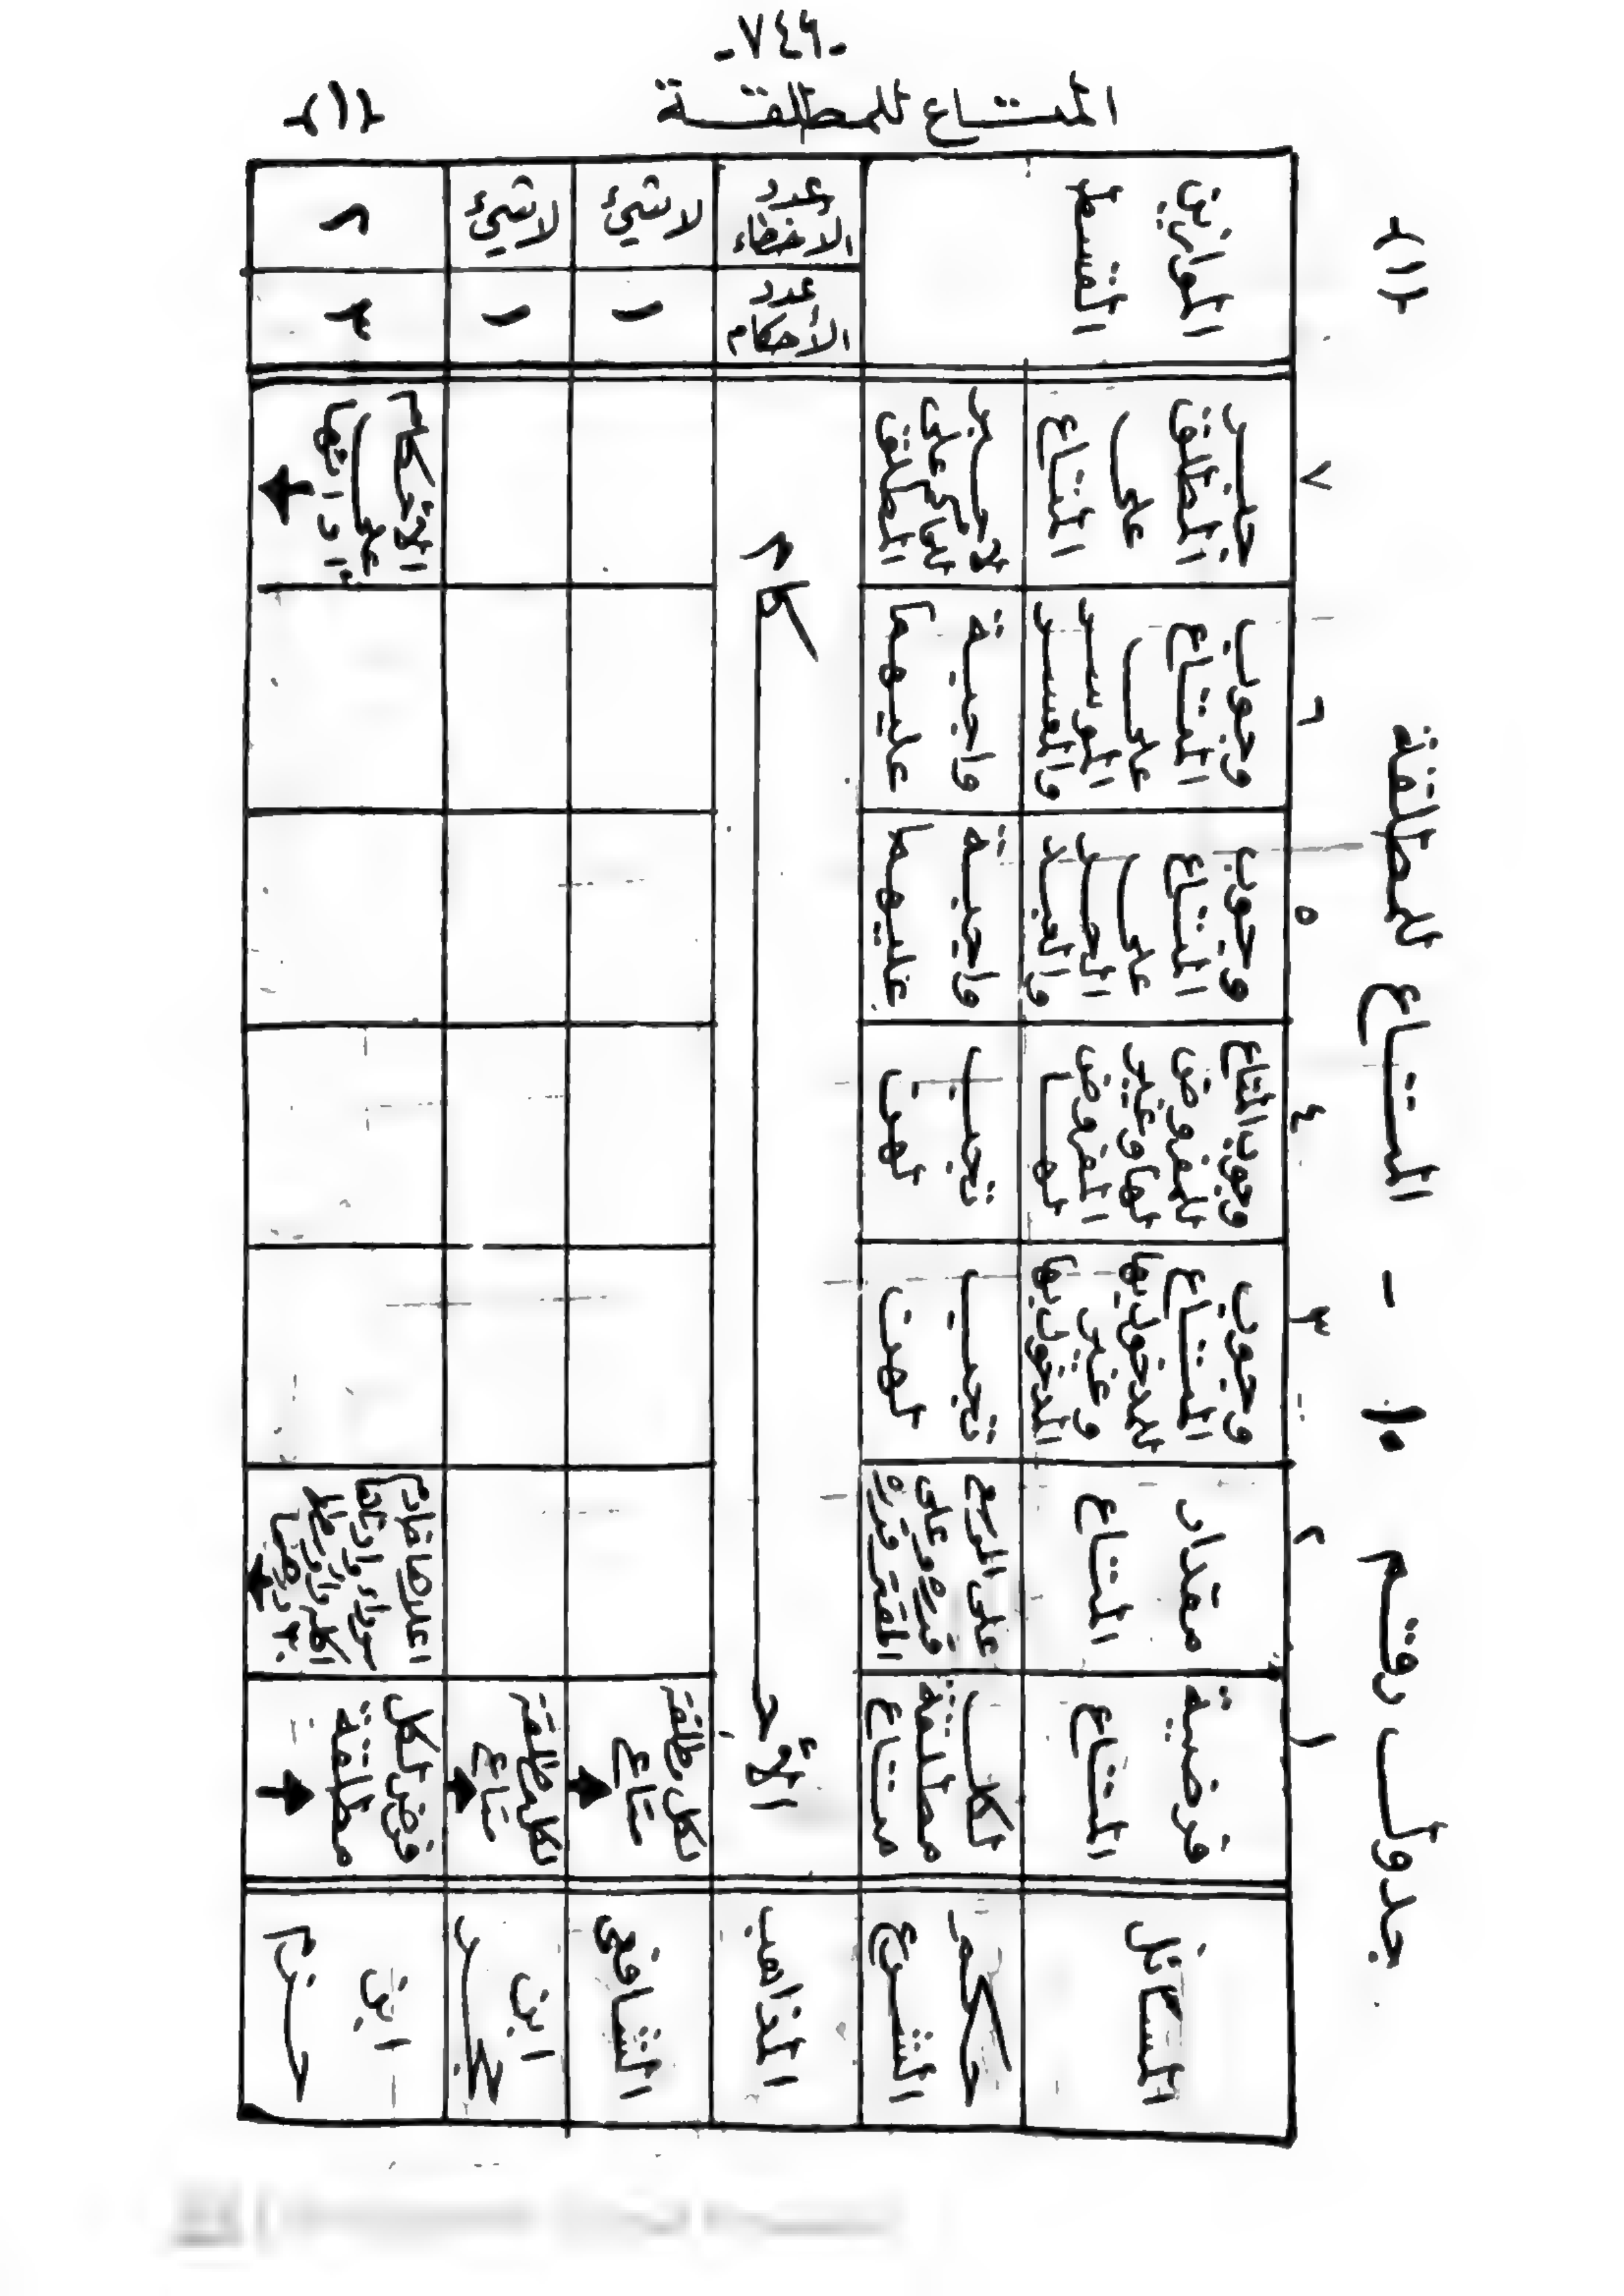 -٧٤٦-
المتاع للمطلقة
(١)
جدول رقم ١٠ - المتاع للمطلقة
(١)
المسائل
١
فرضية
المتاع
٢
مقدار
المتاع
٣
وجوب
المتاع
للمدخول بها
وغير
المدخول بها
٤
وجوب المتاع
للمفروض
لها وغير
المفروض
لها
٥
وجوب
المتاع
على
الحر
والعبد
٦
وجوب
المتاع
على
الموسر
والمعسر
٧
جبر
المطلق
على
المتاع
الموازين
القسط
حكم
الشرع
لكل
مطلقة
متاع
على الموسع
قدره وعلى
المقتر قدره
تجب
لهن
تجب
لهن
واجبة
عليهما
واجبة
عليهما
للحاكم على
المطلق
المذاهب
الأحكام
عدد
الأخطاء
عدد
الأحكام
الشافعي
لكل مطلقة
متاع
لا شيئ
١
ابن
حجر
لكل مطلقة
متاع
لا شيئ
١
ابن
حزم
فرض لكل
مطلقة
الأحكام
على
٢
٣